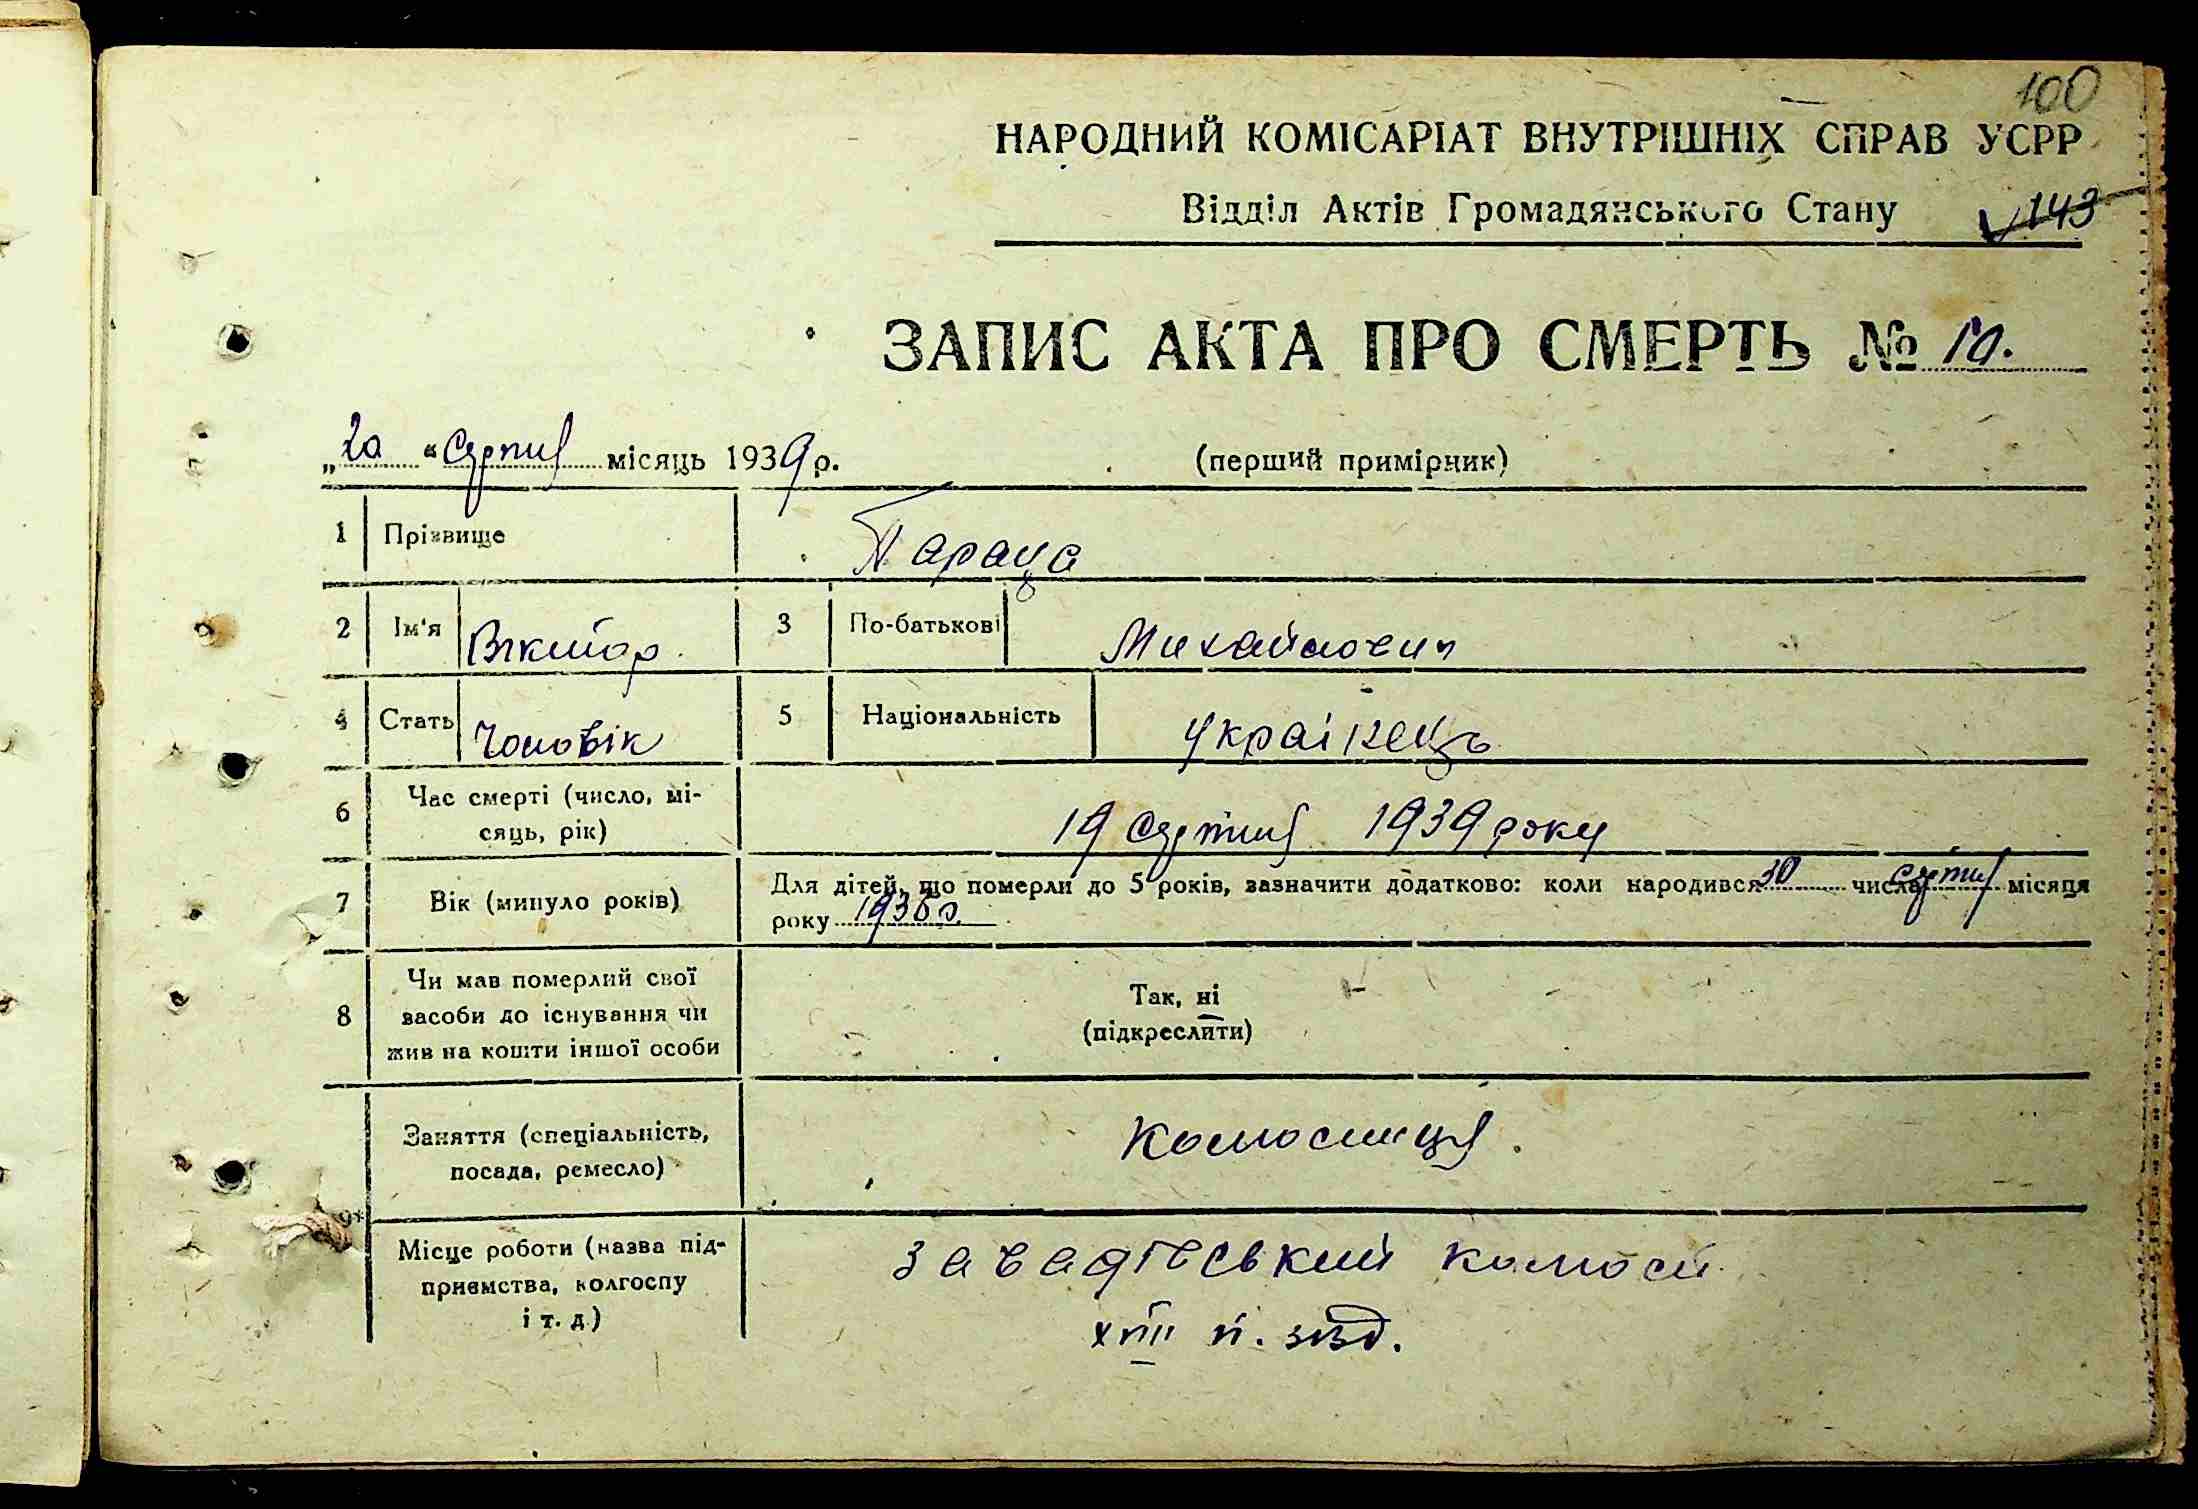 100
НАРОДНИЙ КОМІСАРІАТ ВНУТРІШНІХ СПРАВ УСРР
Відділ Актів Громадянського Стану 143
ЗАПИС АКТА ПРО СМЕРТЬ № 10.
„20“ Серпня місяць 1939 р. (перший примірник)
1 Прізвище Параца
2 Ім'я Віктор. 3 По-батькові Михайлович
4 Стать Чоловік 5 Національність Українець
6 Час смерті (число, мі-
сяць, рік) 19 Серпня 1939 року
7 Вік (минуло років) Для дітей, що померли до 5 років, зазначити додатково: коли народився 30 числа серпня місяця
року 1938 р.
8 Чи мав померлий свої
засоби до існування чи
жив на кошти іншої особи
Так, ні
(підкреслити)
9 Заняття (спеціальність,
посада, ремесло) Колосниця.
Місце роботи (назва під-
приємства, колгоспу
і т. д.)
Завадівський колгосп
XVII п. з'їзд.